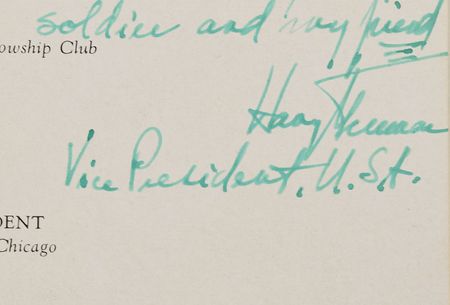 soldier and my friend
owship Club
Harry Truman
Vice President, U.S.A.
DENT
Chicago